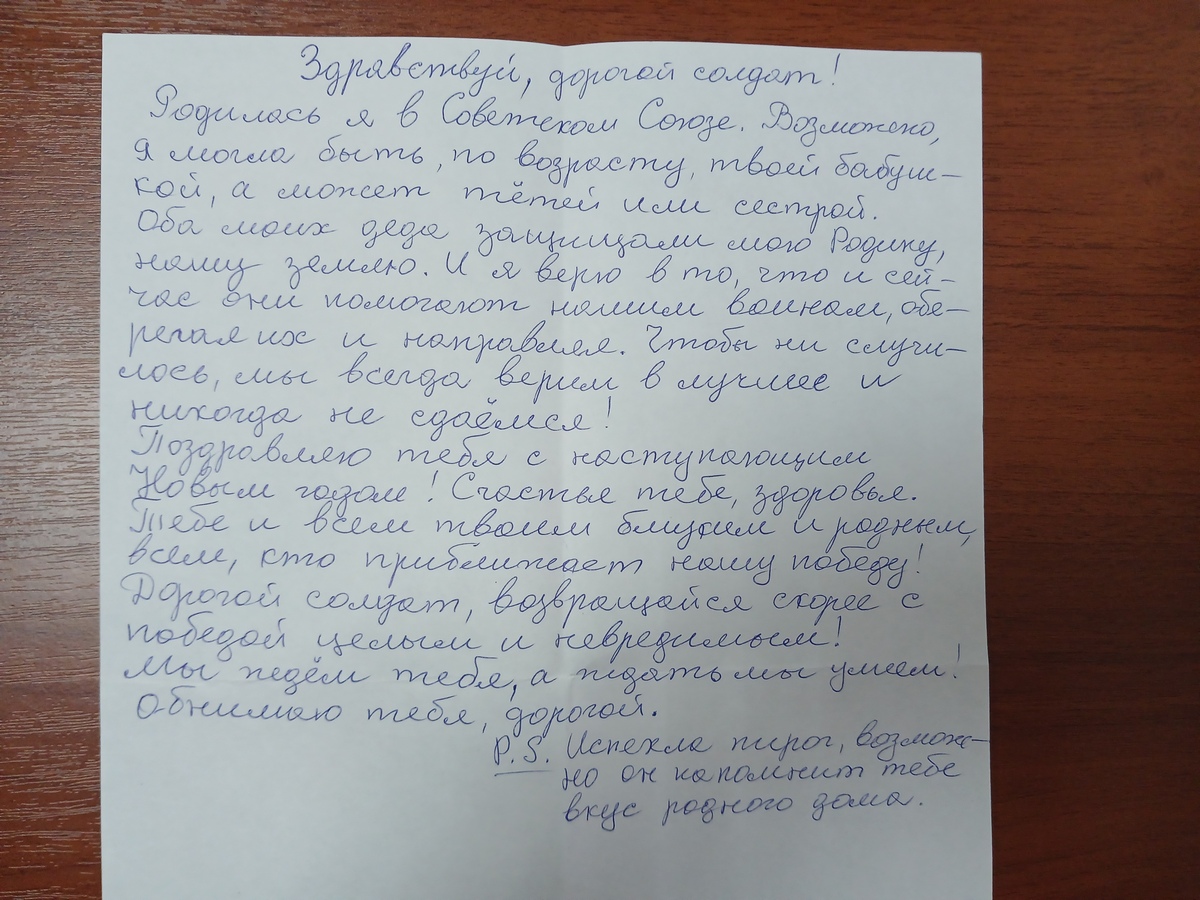 Здравствуй, дорогой солдат!
Родилась я в Советском Союзе. Возможно,
я могла быть, по возрасту, твоей бабуш-
кой, а может тётей или сестрой.
Оба моих деда защищали мою Родину,
нашу землю. И я верю в то, что и сей-
час они помогают нашим воинам, обе-
регая их и направляя. Чтобы ни случи-
лось, мы всегда верим в лучшее и
никогда не сдаёмся!
Поздравляю тебя с наступающим
Новым годом! Счастья тебе, здоровья.
Тебе и всем твоим близким и родным,
всем, кто приближает нашу победу!
Дорогой солдат, возвращайся скорее с
победой целым и невредимым!
Мы ждём тебя, а ждать мы умеем!
Обнимаю тебя, дорогой.
P.S. Испекла пирог, возмож-
но он напомнит тебе
вкус родного дома.